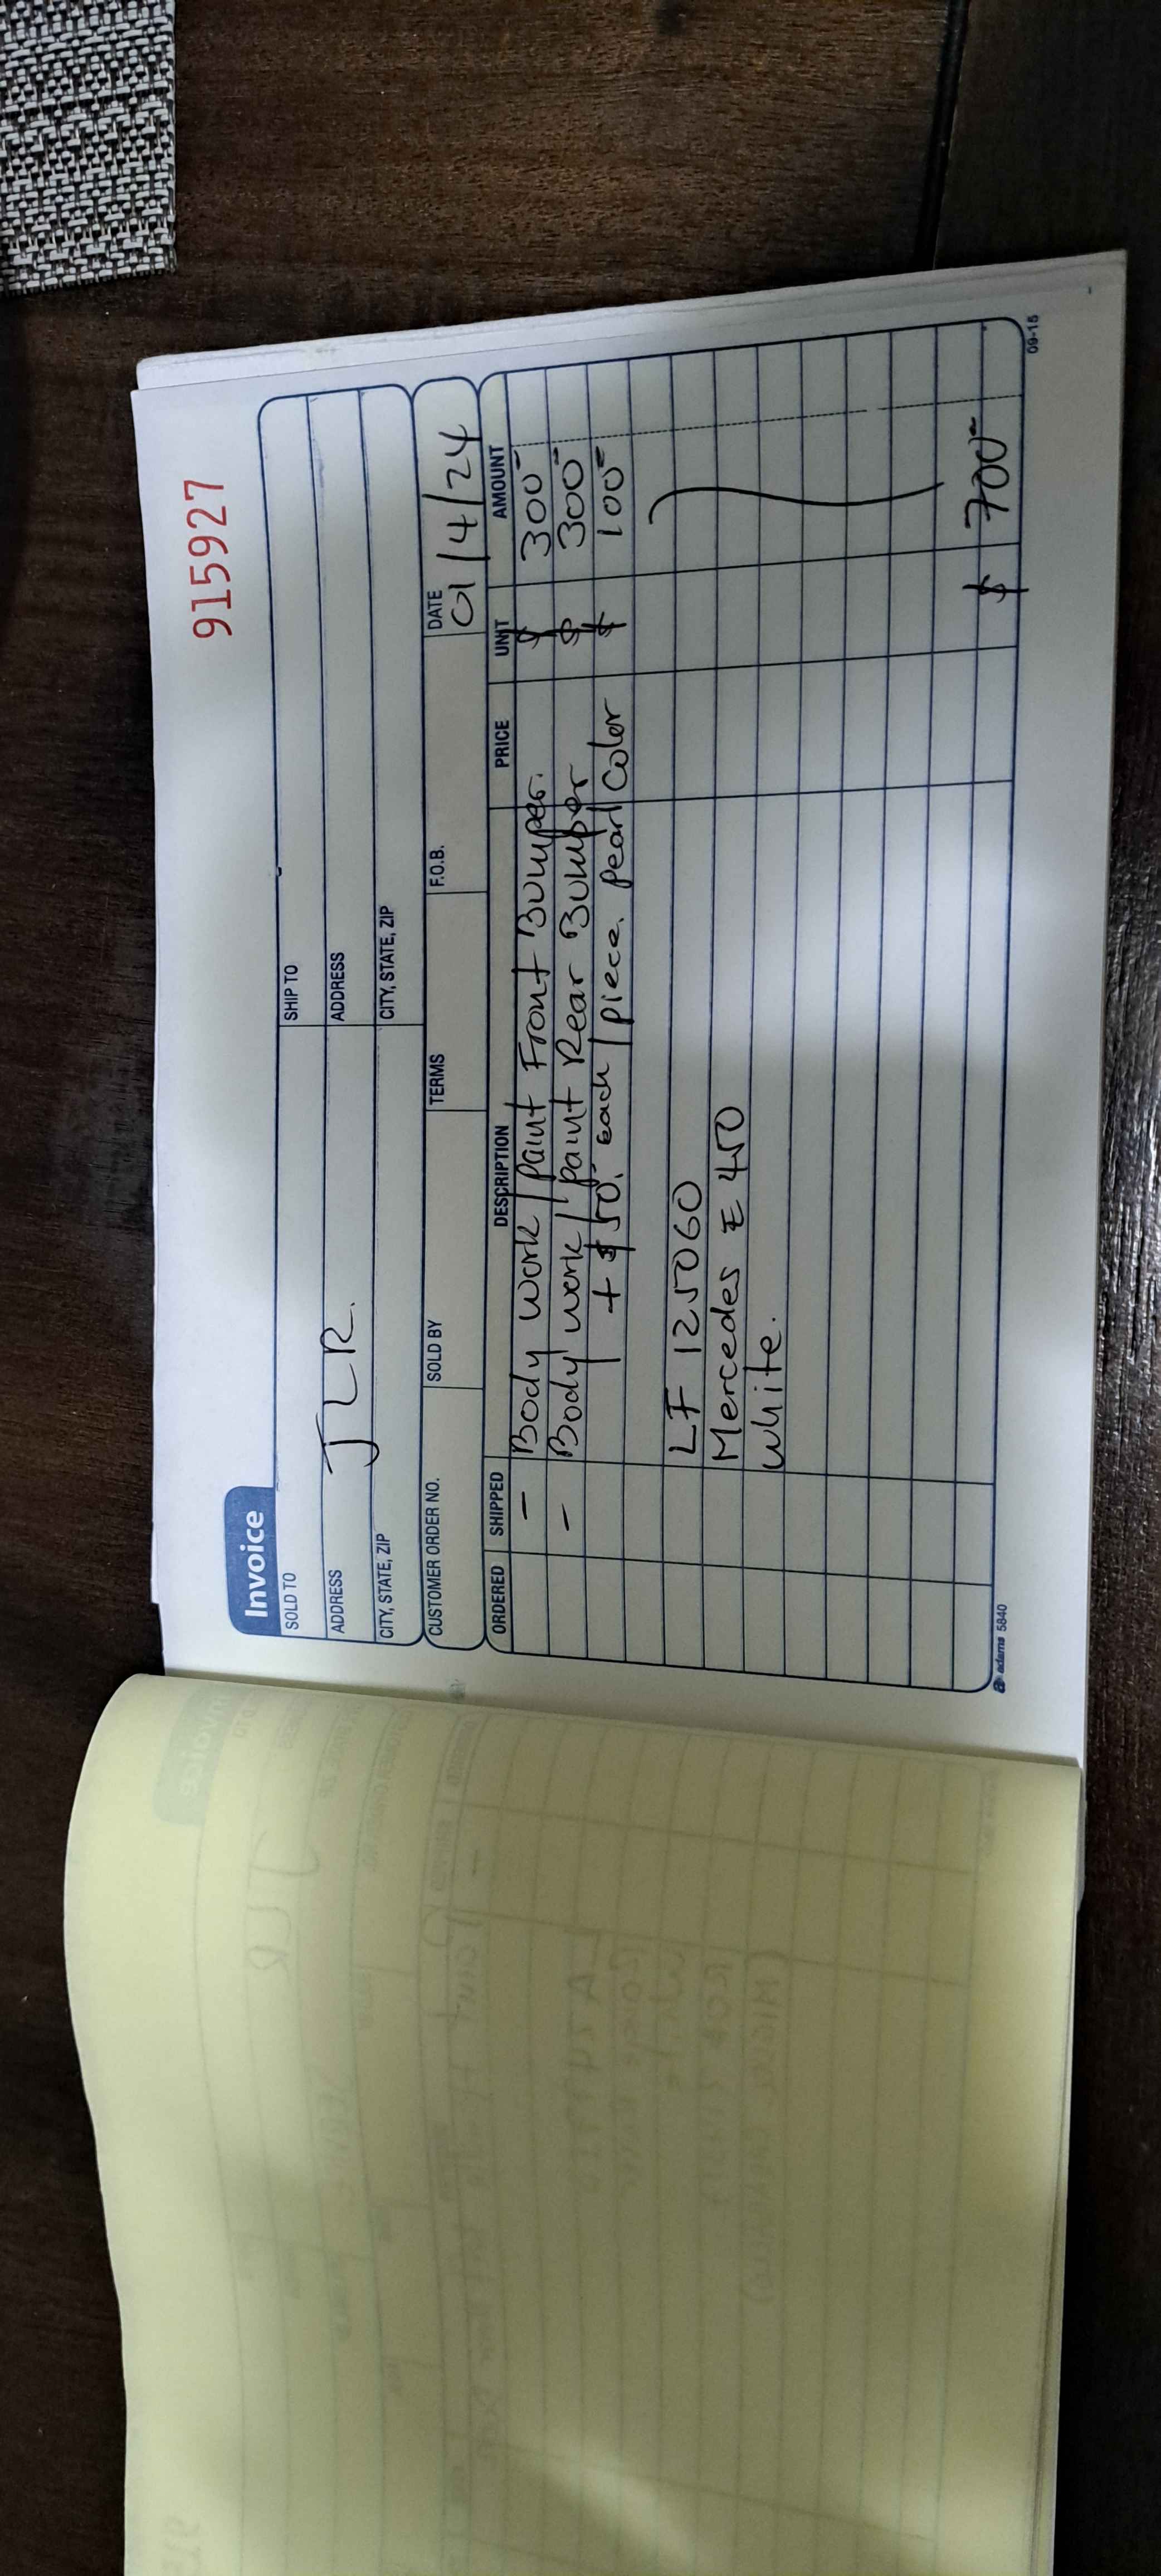 915927
Invoice
SOLD TO
SHIP TO
ADDRESS
JLR.
ADDRESS
CITY, STATE, ZIP
CITY, STATE, ZIP
CUSTOMER ORDER NO.
SOLD BY
TERMS
F.O.B.
DATE
01/4/24
ORDERED SHIPPED DESCRIPTION PRICE UNIT AMOUNT
- Body work/paint Front Bumper. $ 300-
- Body work/paint Rear Bumper $ 300=
+ $50. each/piece. pearl Color $ 100=
LF 125060
Mercedes E 450
White.
$ 700-
adams 5840
09-15